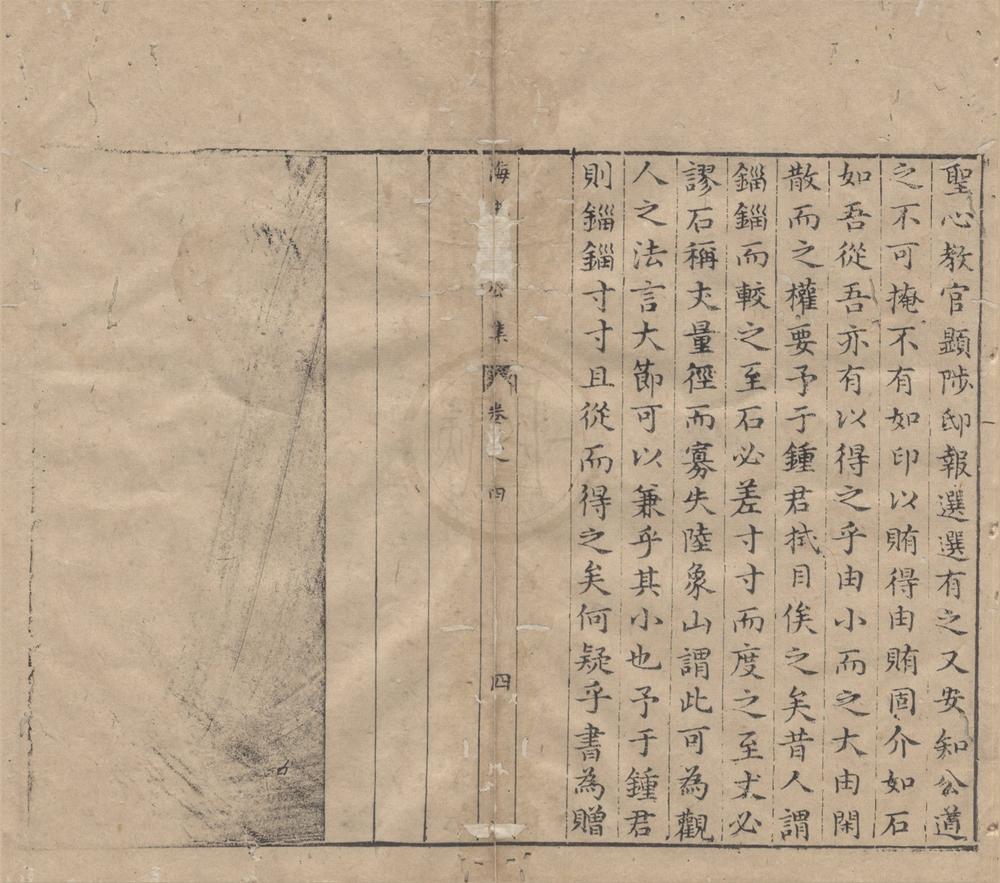 聖心教官顯陟邸報選選有之又安知公道
之不可掩不有如印以賄得由賄固介如石
如吾從吾亦有以得之乎由小而之大由閑
散而之權要予于鍾君拭目俟之矣昔人謂
錙錙而較之至石必差寸寸而度之至丈必
謬石稱丈量徑而寡失陸象山謂此可為觀
人之法言大節可以兼乎其小也予于鍾君
則錙錙寸寸且從而得之矣何疑乎書為贈
海 公集 卷之四 四